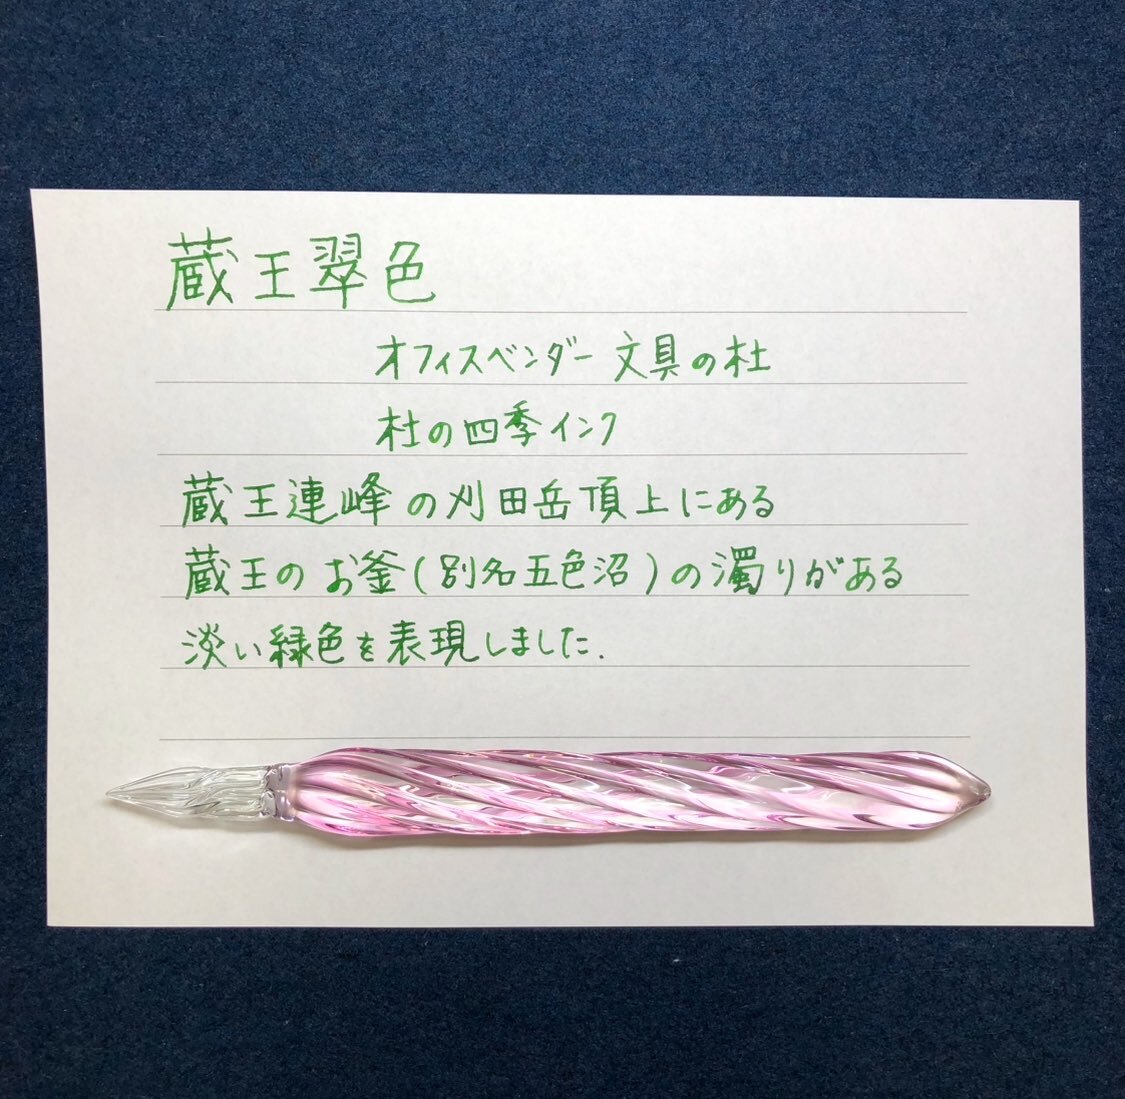 蔵王翠色
オフィスベンダー 文具の杜
杜の四季インク
蔵王連峰の刈田岳頂上にある
蔵王のお釜(別名五色沼)の濁りがある
淡い緑色を表現しました.